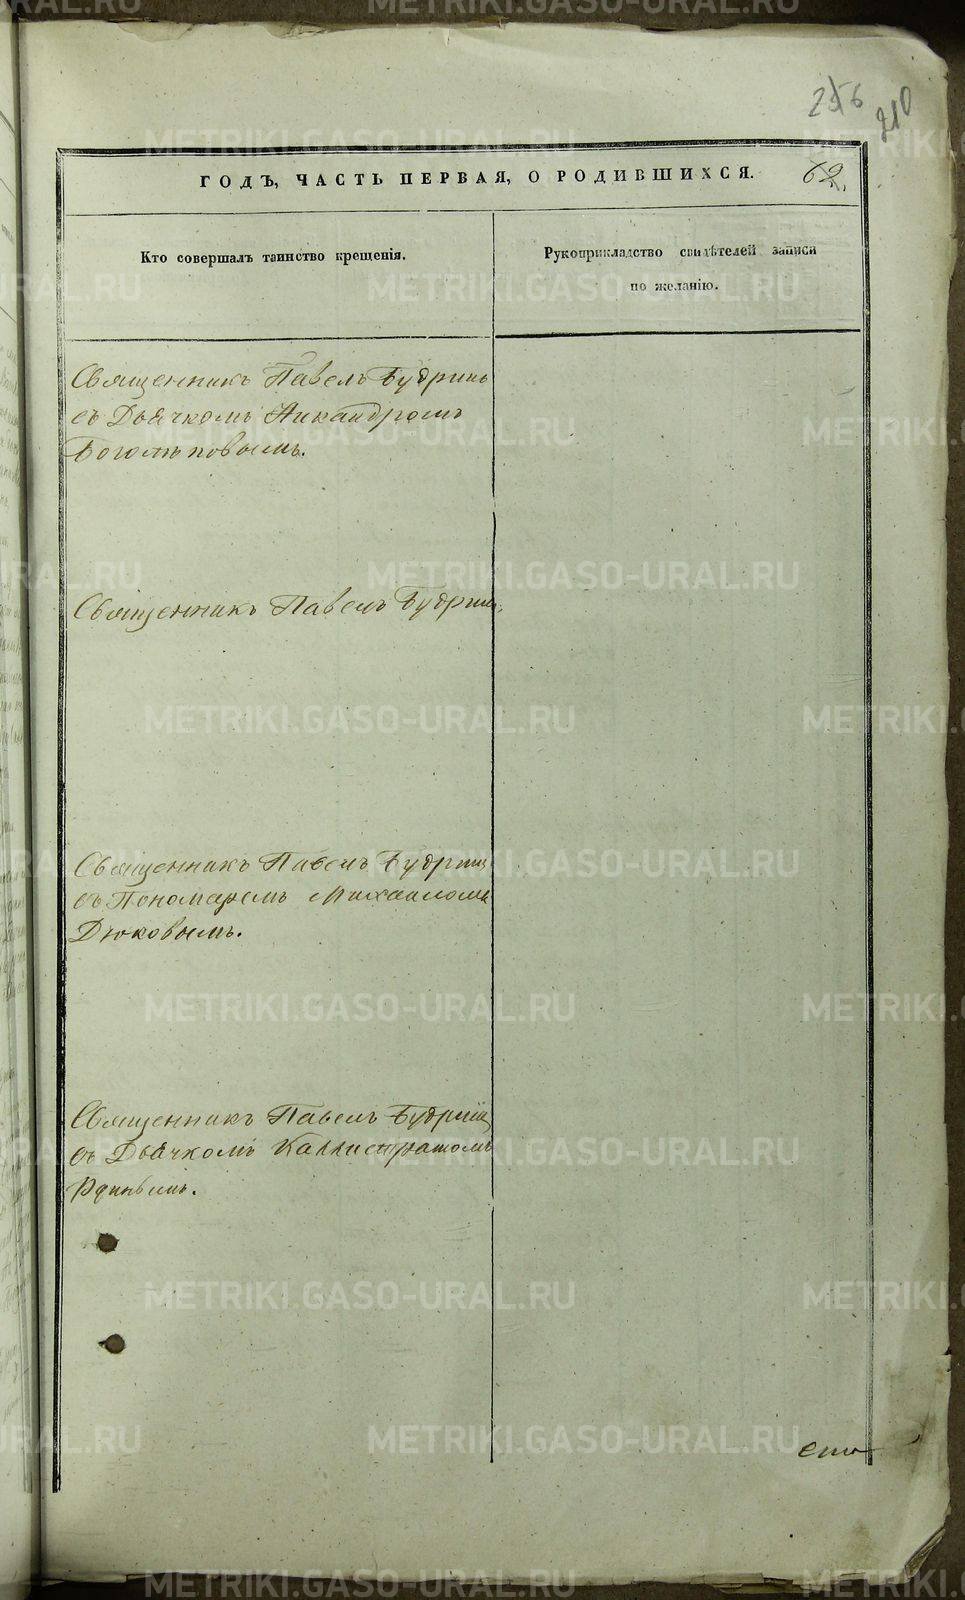 210
ГОДЪ, ЧАСТЬ ПЕРВАЯ, О РОДИВШИХСЯ. 62.
Кто совершалъ таинство крещенія.
Рукоприкладство свидѣтелей записи
по желанію.
Священникъ Павелъ Будринъ
съ Дьячкомъ Никандромъ
Боголѣповымъ.
Священникъ Павелъ Будринъ
Священникъ Павелъ Будринъ
съ Пономаремъ Михаиломъ
Дюковымъ.
Священникъ Павелъ Будринъ
съ Дьячкомъ Каллистратомъ
METRIKI.GASO-URAL.RU